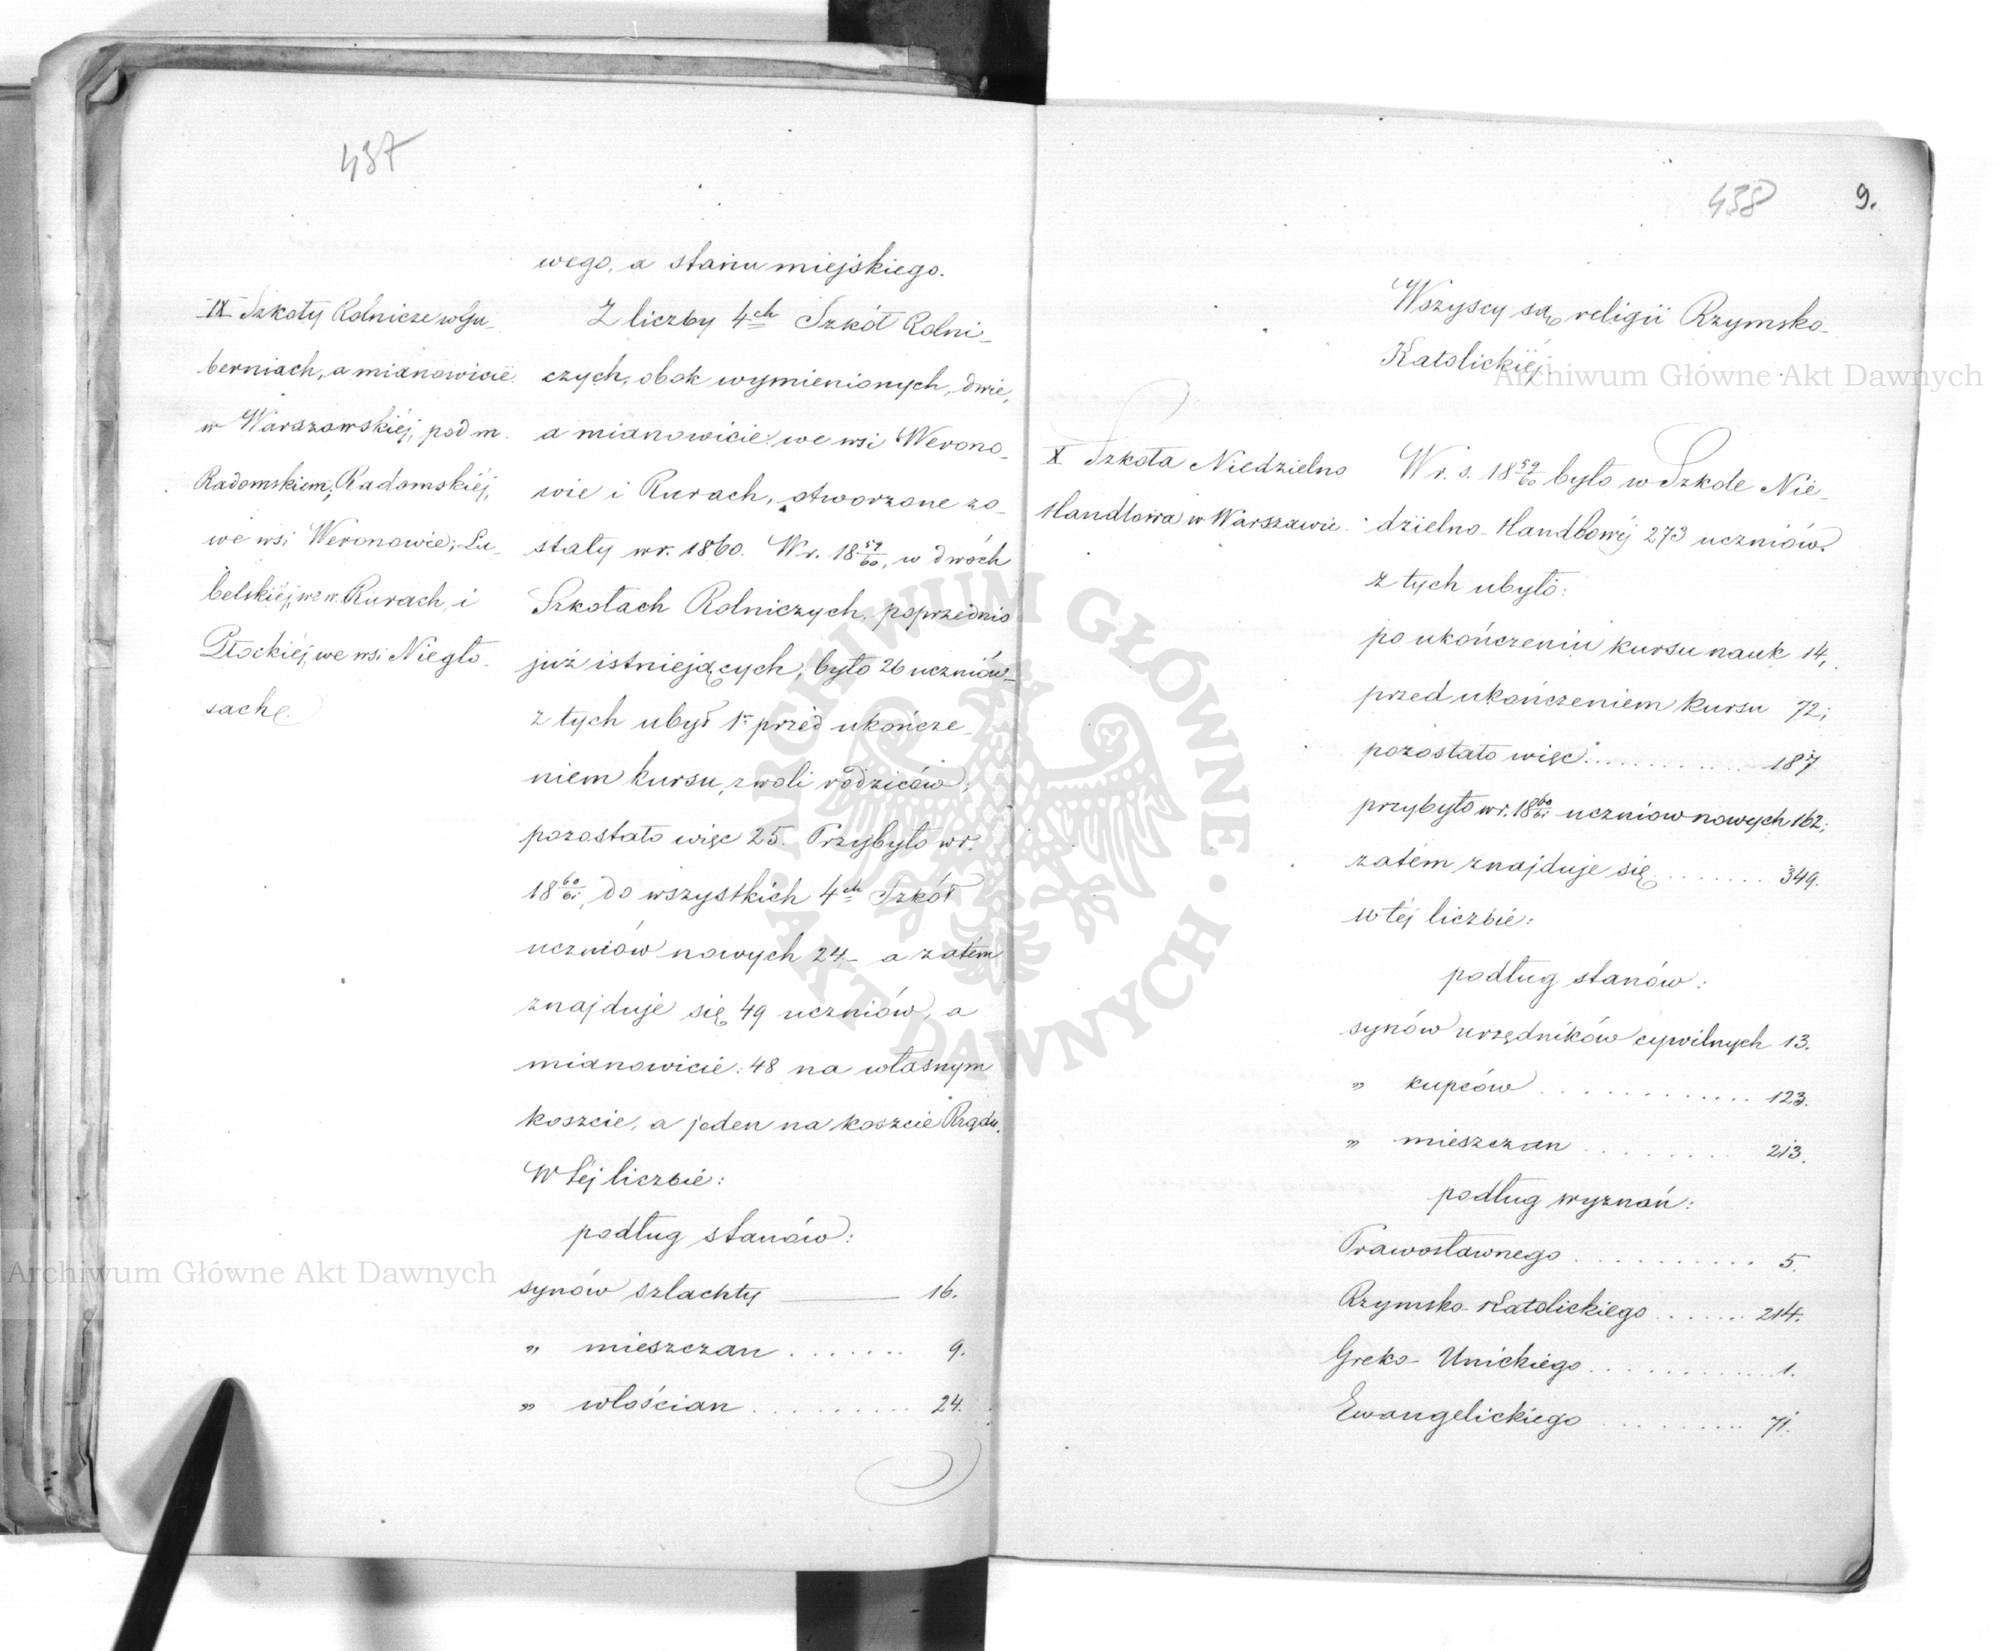 437
wego, a stanu miejskiego.
IX Szkoły Rolnicze w Gu-
berniach, a mianowicie:
w Warszawskiéj, pod m.
Radomskiem; Radomskiéj,
we wsi Weronowie; Lu-
belskiéj, we w. Rurach, i
Płockiéj, we wsi Niegło-
sach.
Z liczby 4ch Szkół Rolni-
czych, obok wymienionych, dwie,
a mianowicie: we wsi Werono-
wie i Rurach, otworzone zo-
stały w r. 1860. W r. 18 59/60, w dwóch
Szkołach Rolniczych, poprzednio
już istniejących, było 26 uczniów-
z tych ubył 1n przed ukończe-
niem kursu, z woli rodziców;
pozostało więc 25. Przybyło w r.
18 60/61, do wszystkich 4ch Szkół
uczniów nowych 24 - a zatém
znajduje się 49 uczniów, a
mianowicie: 48 na własnym
koszcie, a jeden na koszcie Rządu.
W téj liczbie:
podług stanów:
synów szlachty ——— 16.
„ mieszczan ....... 9.
„ włościan .......... 24.
438 9.
Wszyscy są religii Rzymsko-
Katolickiéj.
X Szkoła Niedzielno
Handlowa w Warszawie.
W r. s. 18 59/60 było w Szkole Nie-
dzielno-Handlowéj 273 uczniów.
z tych ubyło:
po ukończeniu kursu nauk 14,
przed ukończeniem kursu 72;
pozostało więc ............ 187
przybyło w r. 18 60/61 uczniów nowych 162;
zatém znajduje się ........ 349.
w téj liczbie:
podług stanów:
synów urzędników cywilnych 13.
„ kupców ............ 123.
„ mieszczan ........ 213.
podług wyznań:
Prawosławnego .......... 5.
Rzymsko-Katolickiego ...... 214.
Greko-Unickiego ............ 1.
Ewangelickiego .......... 71.
Archiwum Główne Akt Dawnych
Archiwum Główne Akt Dawnych
· ARCHIWUM GŁÓWNE · AKT DAWNYCH